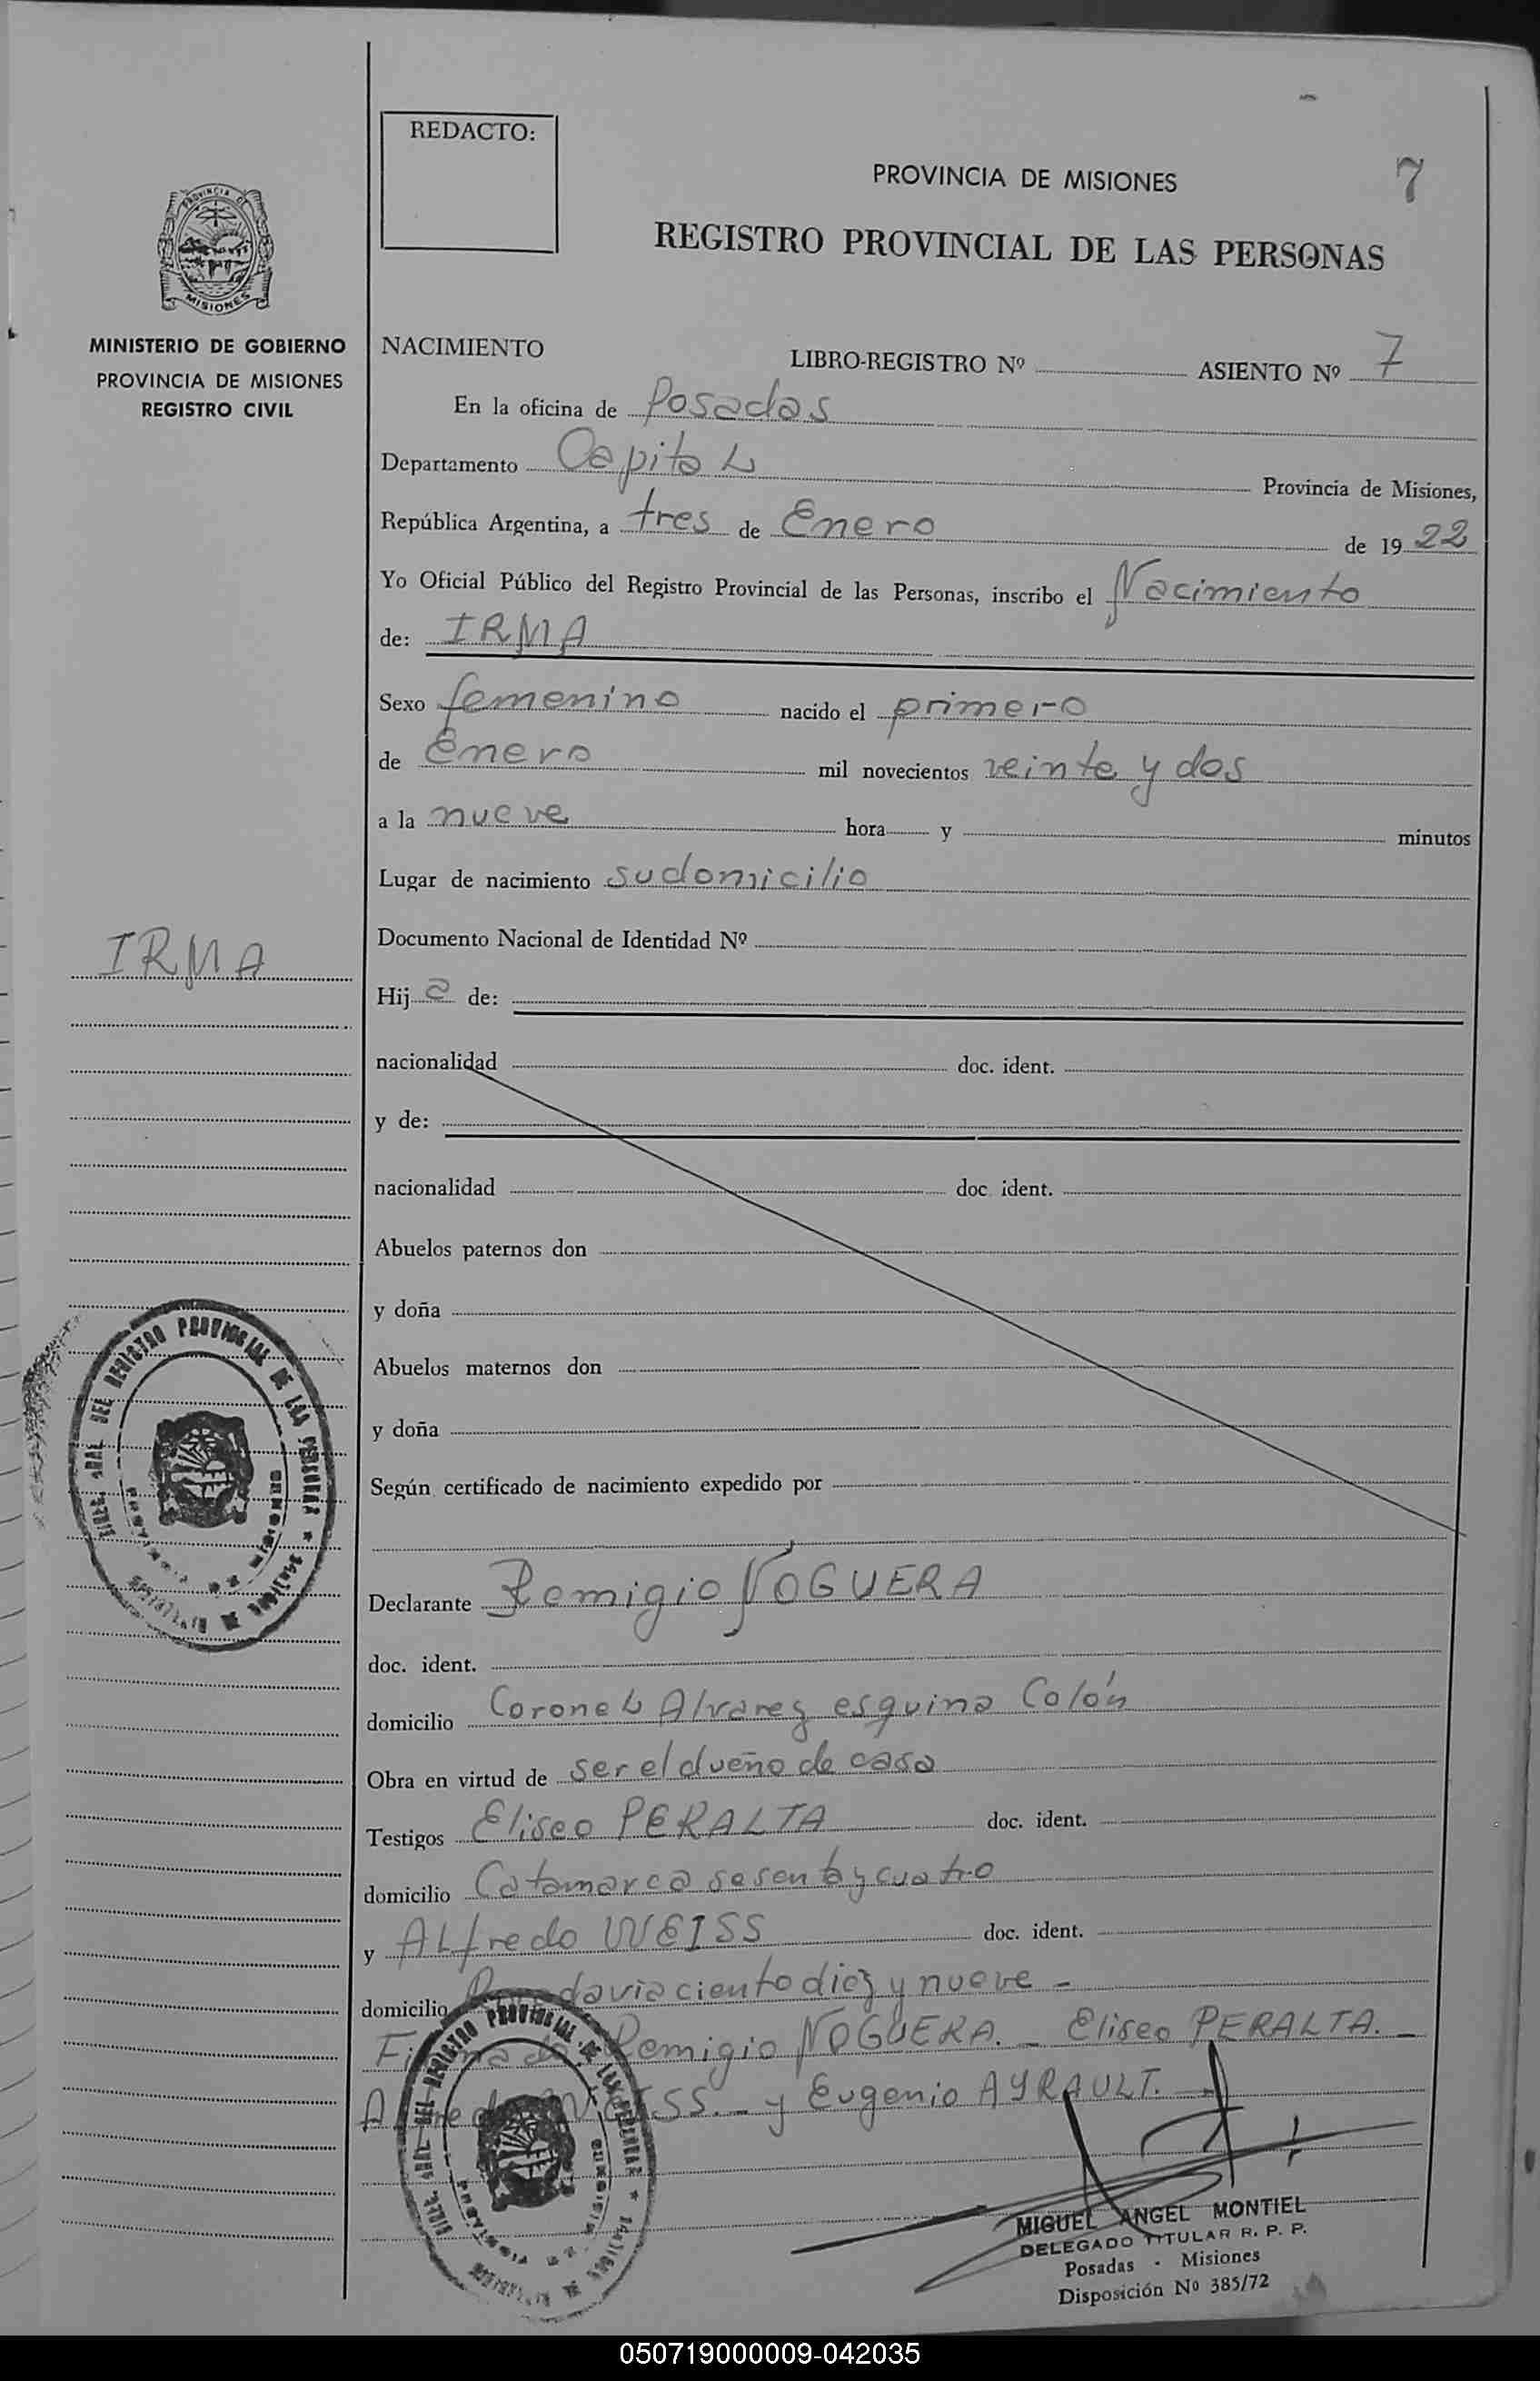 REDACTO:
PROVINCIA DE MISIONES
7
REGISTRO PROVINCIAL DE LAS PERSONAS
PROVINCIA DE
MISIONES
MINISTERIO DE GOBIERNO
PROVINCIA DE MISIONES
REGISTRO CIVIL
NACIMIENTO LIBRO-REGISTRO Nº ASIENTO Nº 7
En la oficina de Posadas
Departamento Capital Provincia de Misiones,
República Argentina, a tres de Enero de 1922
Yo Oficial Público del Registro Provincial de las Personas, inscribo el Nacimiento
de: IRMA
Sexo femenino nacido el primero
de Enero mil novecientos veinte y dos
a la nueve hora y minutos
Lugar de nacimiento su domicilio
IRMA
Documento Nacional de Identidad Nº
Hija de:
nacionalidad doc. ident.
y de:
nacionalidad doc. ident.
Abuelos paternos don
y doña
Abuelos maternos don
y doña
Según certificado de nacimiento expedido por
DEL REGISTRO PROVINCIAL DE LAS PERSONAS
Declarante Remigio NOGUERA
doc. ident.
domicilio Coronel Alvarez esquina Colón
Obra en virtud de ser el dueño de casa
Testigos Eliseo PERALTA doc. ident.
domicilio Catamarca sesenta y cuatro
y Alfredo WEISS doc. ident.
domicilio Rivadavia ciento diez y nueve -
Firmado: Remigio NOGUERA. - Eliseo PERALTA. -
Alfredo WEISS. - y Eugenio AYRAULT. -
DEL REGISTRO PROVINCIAL DE LAS PERSONAS
MIGUEL ANGEL MONTIEL
DELEGADO TITULAR R. P. P.
Posadas - Misiones
Disposición Nº 385/72
050719000009-042035